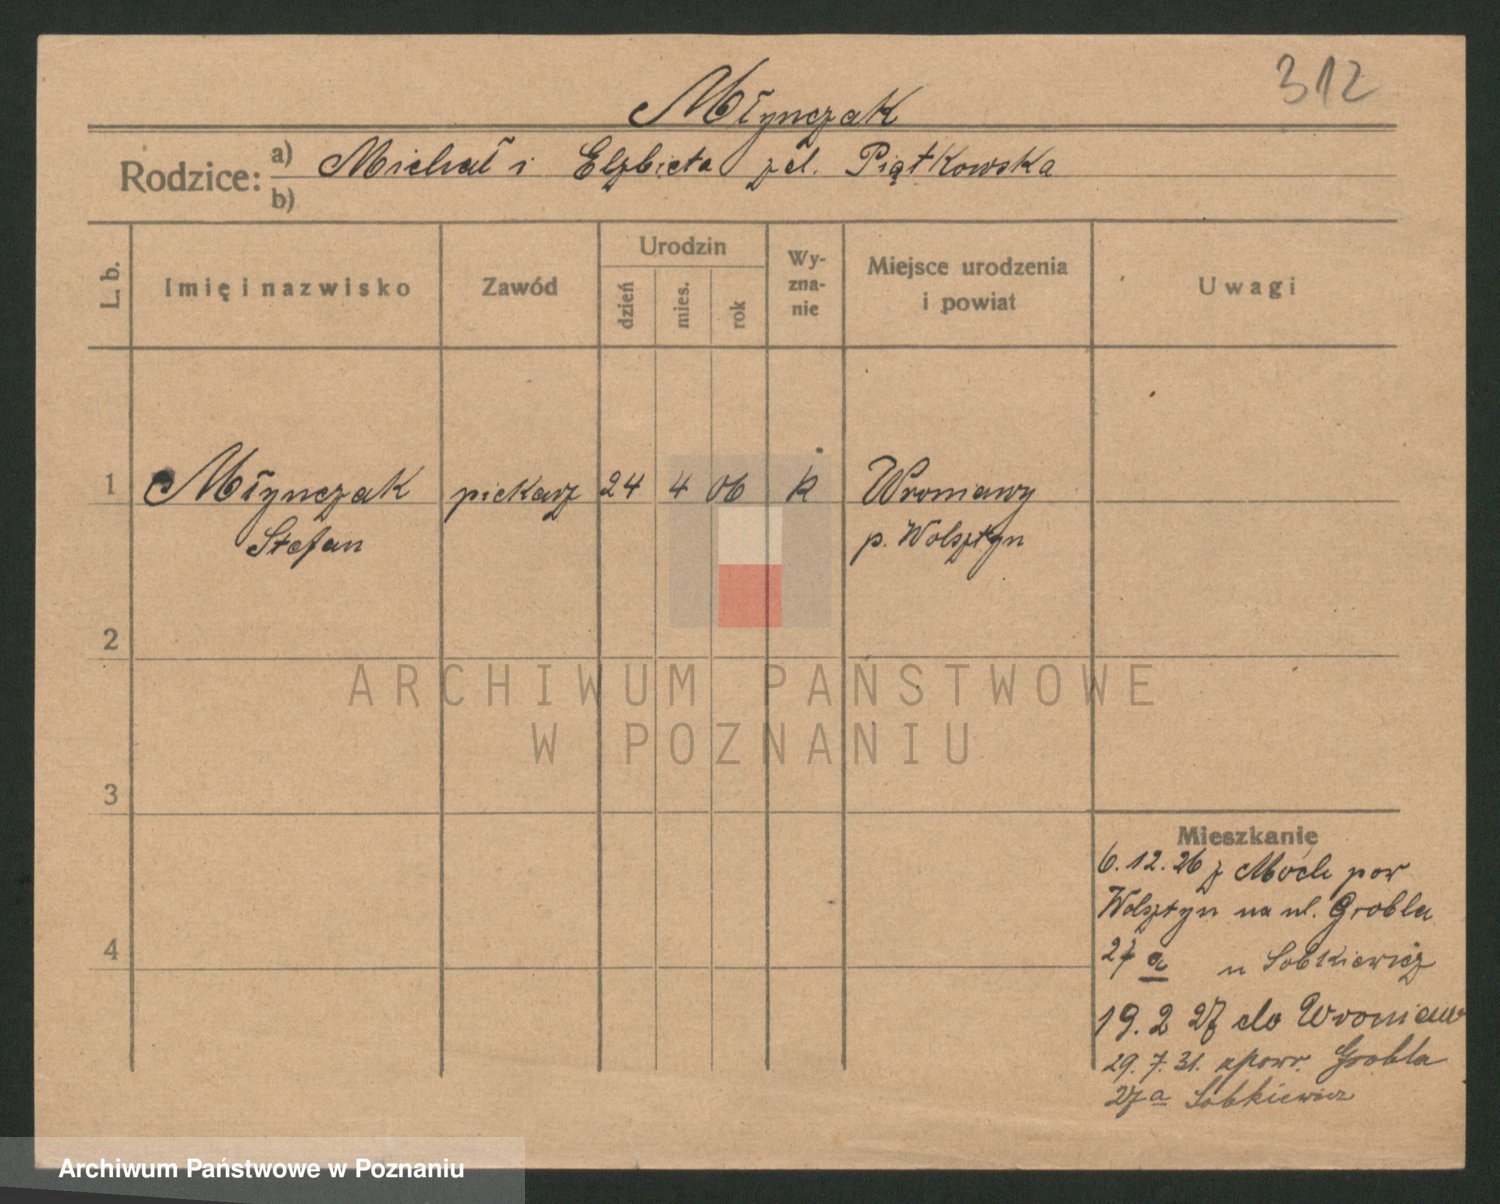 312
Młynczak
Rodzice: a) Michał i Elzbieta zd. Piątkowska
b)
L. b. Imię i nazwisko Zawód Urodzin dzień mies. rok Wy-zna-nie Miejsce urodzenia i powiat Uwagi
1 Młynczak piekarz 24 4 06 k Wroniawy
Stefan p. Wolsztyn
2
ARCHIWUM PAŃSTWOWE
W POZNANIU
3
Mieszkanie
6.12.26 z Moch pow
Wolsztyn na ul. Grobla
4
27 a u Sobkiewicz
19.2 27 do Wroniaw
29.7.31. spowr. Grobla
27a Sobkiewicz
Archiwum Państwowe w Poznaniu